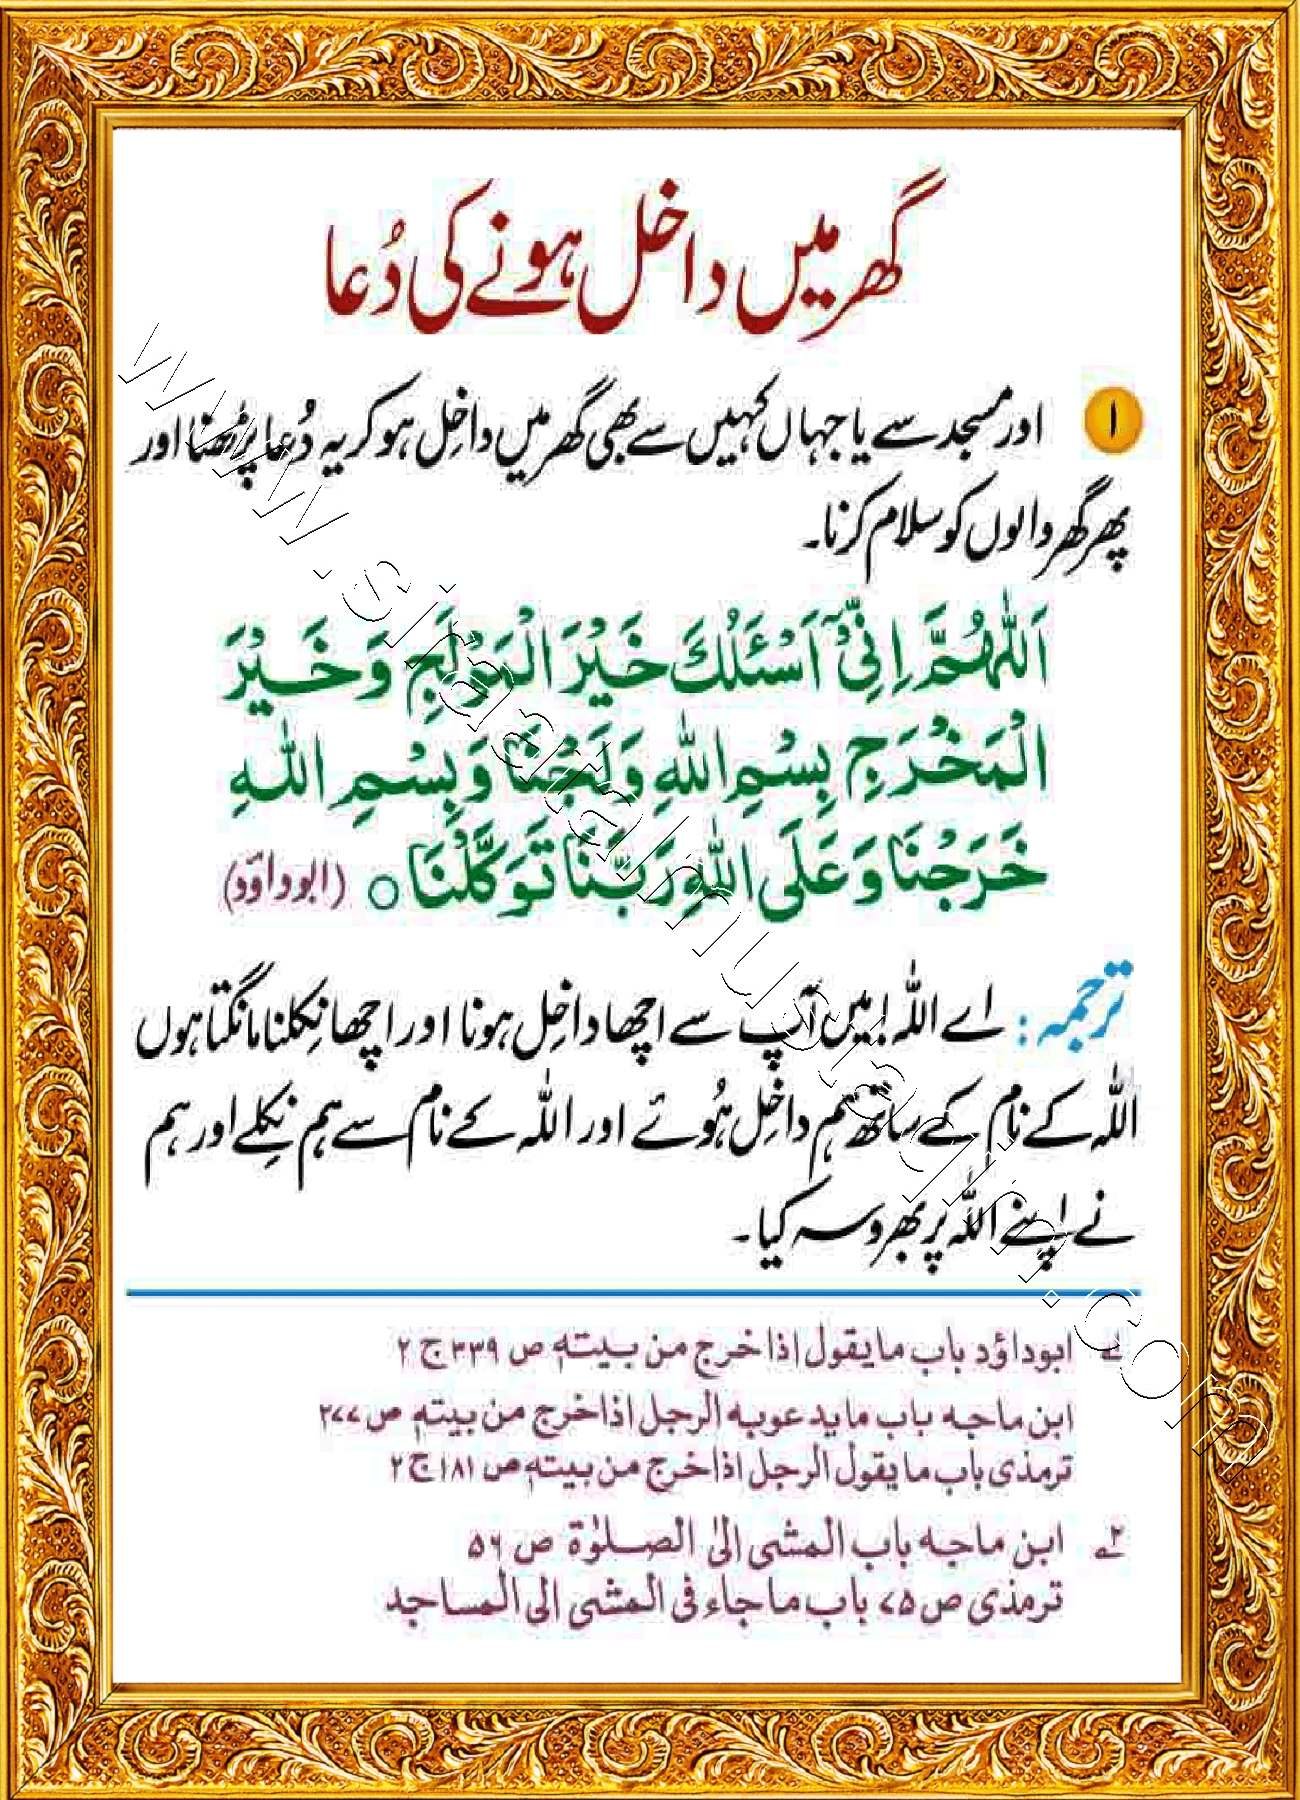 گھر میں داخل ہونے کی دُعا
۱ اور مسجد سے یا جہاں کہیں سے بھی گھر میں داخِل ہو کر یہ دُعا پڑھنا اور
پھر گھر والوں کو سلام کرنا۔
اَللّٰهُمَّ اِنِّیْۤ اَسْئَلُكَ خَیْرَ الْمَوْلَجِ وَ خَیْرَ
الْمَخْرَجِ بِسْمِ اللّٰهِ وَلَجْنَا وَ بِسْمِ اللّٰهِ
خَرَجْنَا وَ عَلَی اللّٰهِ رَبِّنَا تَوَكَّلْنَا ○ (ابوداؤد)
ترجمہ: اے اللہ! میں آپ سے اچھا داخِل ہونا اور اچھا نِکلنا مانگتا ہوں
اللہ کے نام کے ساتھ ہم داخِل ہُوئے اور اللہ کے نام سے ہم نِکلے اور ہم
نے اپنے اللہ پر بھروسہ کیا۔
۱ ابوداؤد باب مایقول اذا خرج من بیتہٖ ص ۳۳۹ ج ۲
ابن ماجہ باب ماید عوبہ الرجل اذاخرج من بیتہٖ ص ۲۷۷
ترمذی باب مایقول الرجل اذاخرج من بیتہٖ ص ۱۸۱ ج ۲
۲ ابن ماجہ باب المشی الیٰ الصلوٰۃ ص ۵۶
ترمذی ص ۷۵ باب ماجاء فی المشی الی المساجد
www.siraatalmubaligh.com